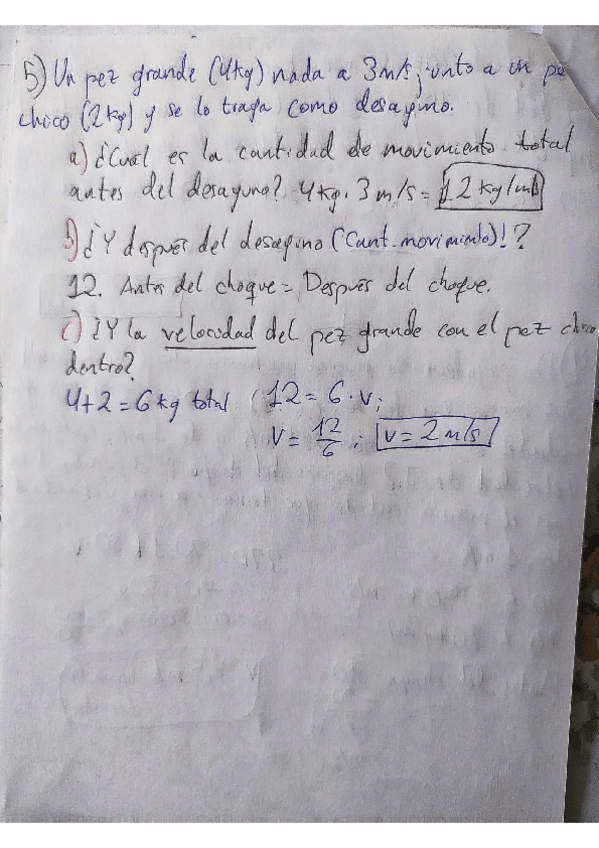 5) Un pez grande (4kg) nada a 3m/s, junto a un pe
chico (2kg) y se lo traga como desayuno.
a) ¿Cual es la cantidad de movimiento total
antes del desayuno? 4kg. 3m/s = 12 kg/m/s
b) ¿Y despues del desayuno (Cant. movimiento)!?
12. Antes del choque = Despues del choque.
c) ¿Y la velocidad del pez grande con el pez chico
dentro?
4+2=6kg total ( 12 = 6 · v;
v = 12/6 ; v = 2 m/s